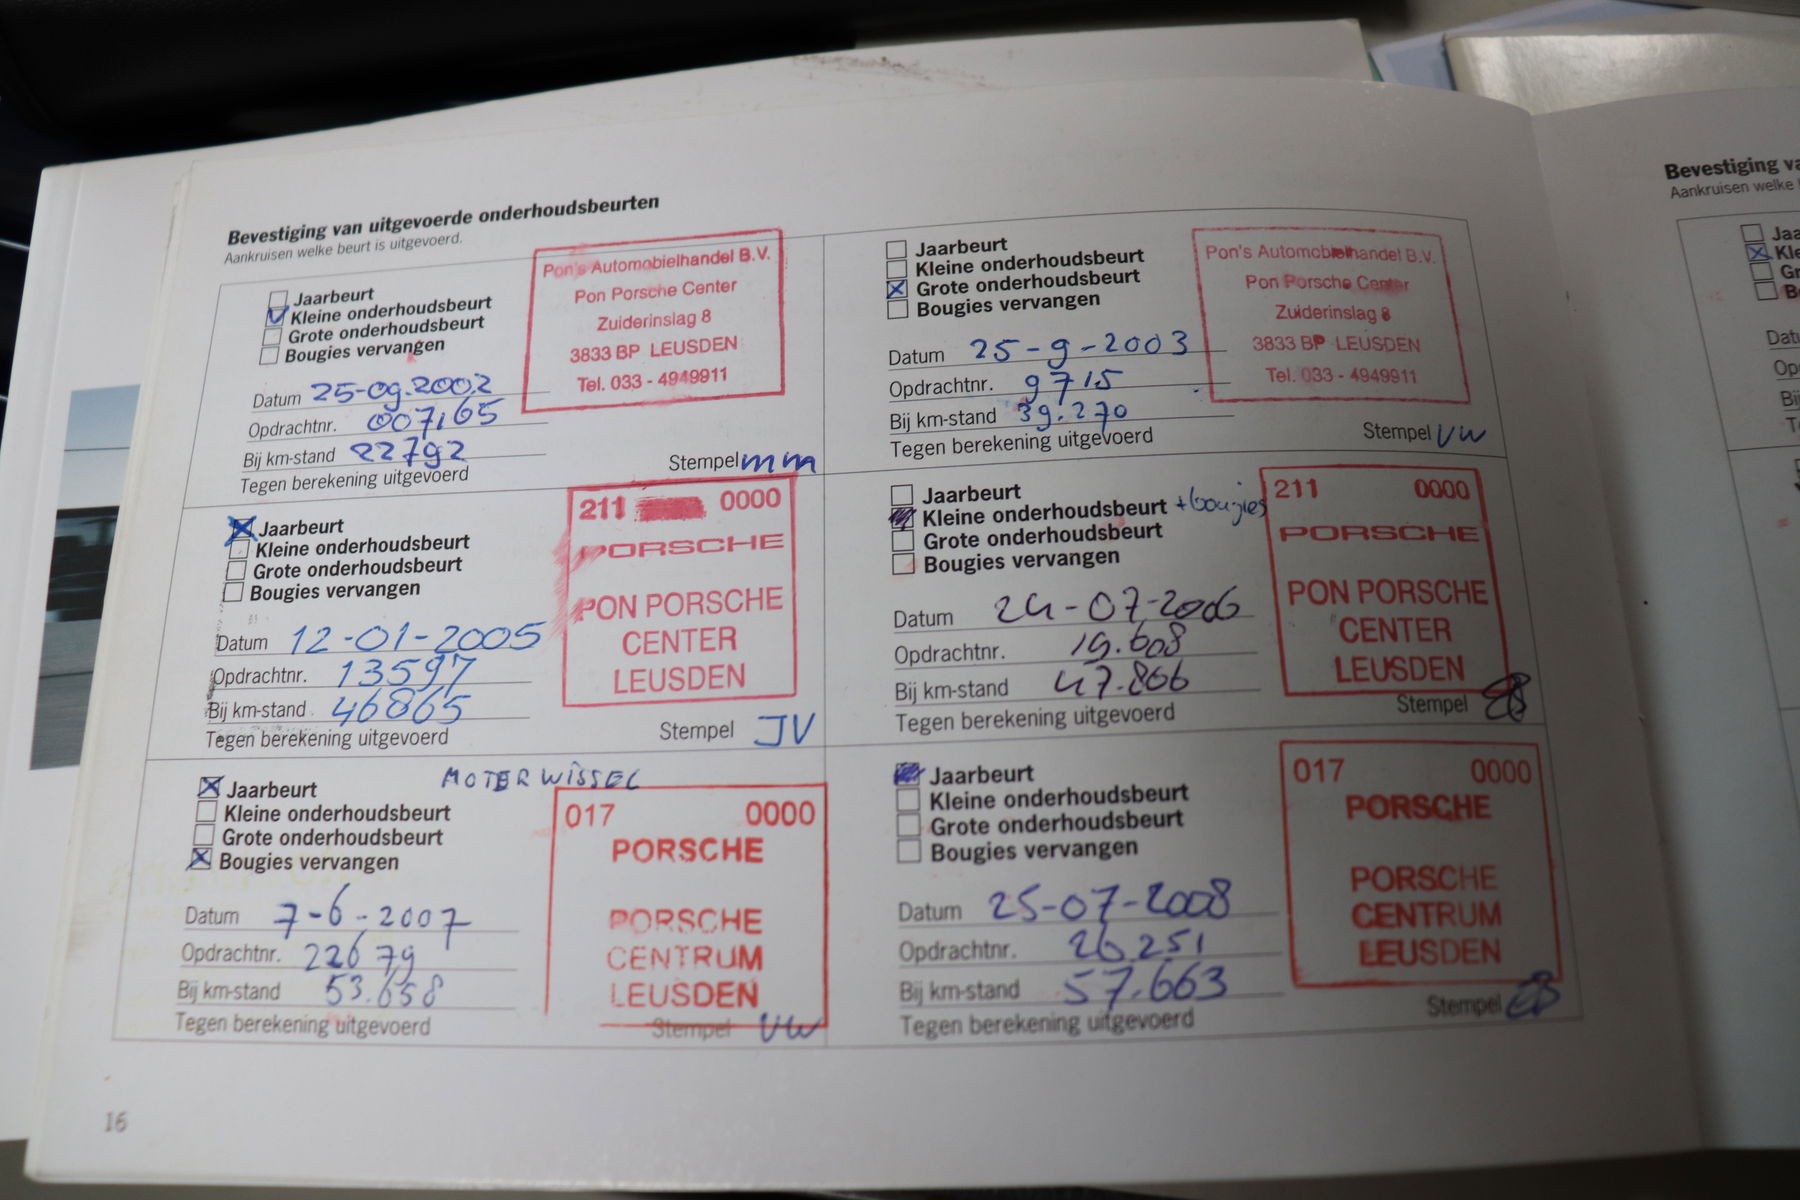 Bevestiging van uitgevoerde onderhoudsbeurten
Aankruisen welke beurt is uitgevoerd.
Jaarbeurt
Kleine onderhoudsbeurt
Grote onderhoudsbeurt
Bougies vervangen
Datum 25-09-2002
Opdrachtnr. 007165
Bij km-stand 22792
Tegen berekening uitgevoerd
Pon's Automobielhandel B.V.
Pon Porsche Center
Zuiderinslag 8
3833 BP LEUSDEN
Tel. 033 - 4949911
Stempel mm
Jaarbeurt
Kleine onderhoudsbeurt
Grote onderhoudsbeurt
Bougies vervangen
Datum 25-9-2003
Opdrachtnr. 9715
Bij km-stand 39.270
Tegen berekening uitgevoerd
Pon's Automobielhandel B.V.
Pon Porsche Center
Zuiderinslag 8
3833 BP LEUSDEN
Tel. 033 - 4949911
Stempel VW
Jaarbeurt
Kleine onderhoudsbeurt
Grote onderhoudsbeurt
Bougies vervangen
Datum 12-01-2005
Opdrachtnr. 13597
Bij km-stand 46865
Tegen berekening uitgevoerd
211 0000
PORSCHE
PON PORSCHE
CENTER
LEUSDEN
Stempel JV
Jaarbeurt
Kleine onderhoudsbeurt +bougies
Grote onderhoudsbeurt
Bougies vervangen
Datum 24-07-2006
Opdrachtnr. 19.608
Bij km-stand 47.866
Tegen berekening uitgevoerd
211 0000
PORSCHE
PON PORSCHE
CENTER
LEUSDEN
Stempel
Jaarbeurt
Kleine onderhoudsbeurt
Grote onderhoudsbeurt
Bougies vervangen
MOTER WISSEL
Datum 7-6-2007
Opdrachtnr. 22679
Bij km-stand 53.658
Tegen berekening uitgevoerd
017 0000
PORSCHE
PORSCHE
CENTRUM
LEUSDEN
Stempel VW
Jaarbeurt
Kleine onderhoudsbeurt
Grote onderhoudsbeurt
Bougies vervangen
Datum 25-07-2008
Opdrachtnr. 26.251
Bij km-stand 57.663
Tegen berekening uitgevoerd
017 0000
PORSCHE
PORSCHE
CENTRUM
LEUSDEN
Stempel
16
Bevestiging va
Aankruisen welke
Jaa
Kle
Gr
B
Datu
Op
Bij